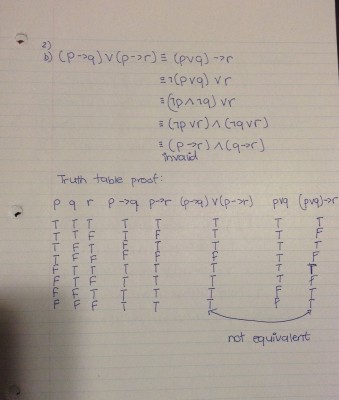 2)
b) (p→q) ∨ (p→r) ≡ (p∨q) →r
≡ ¬(p∨q) ∨r
≡ (¬p∧¬q) ∨r
≡ (¬p∨r) ∧ (¬q∨r)
≡ (p→r) ∧ (q→r)
invalid
Truth table proof:
p q r p→q p→r (p→q) ∨ (p→r) p∨q (p∨q)→r
T T T T T T T T
T T F T F T T F
T F T F T T T T
T F F F F F T F
F T T T T T T T
F T F T T T T F
F F T T T T F T
F F F T T T F T
not equivalent